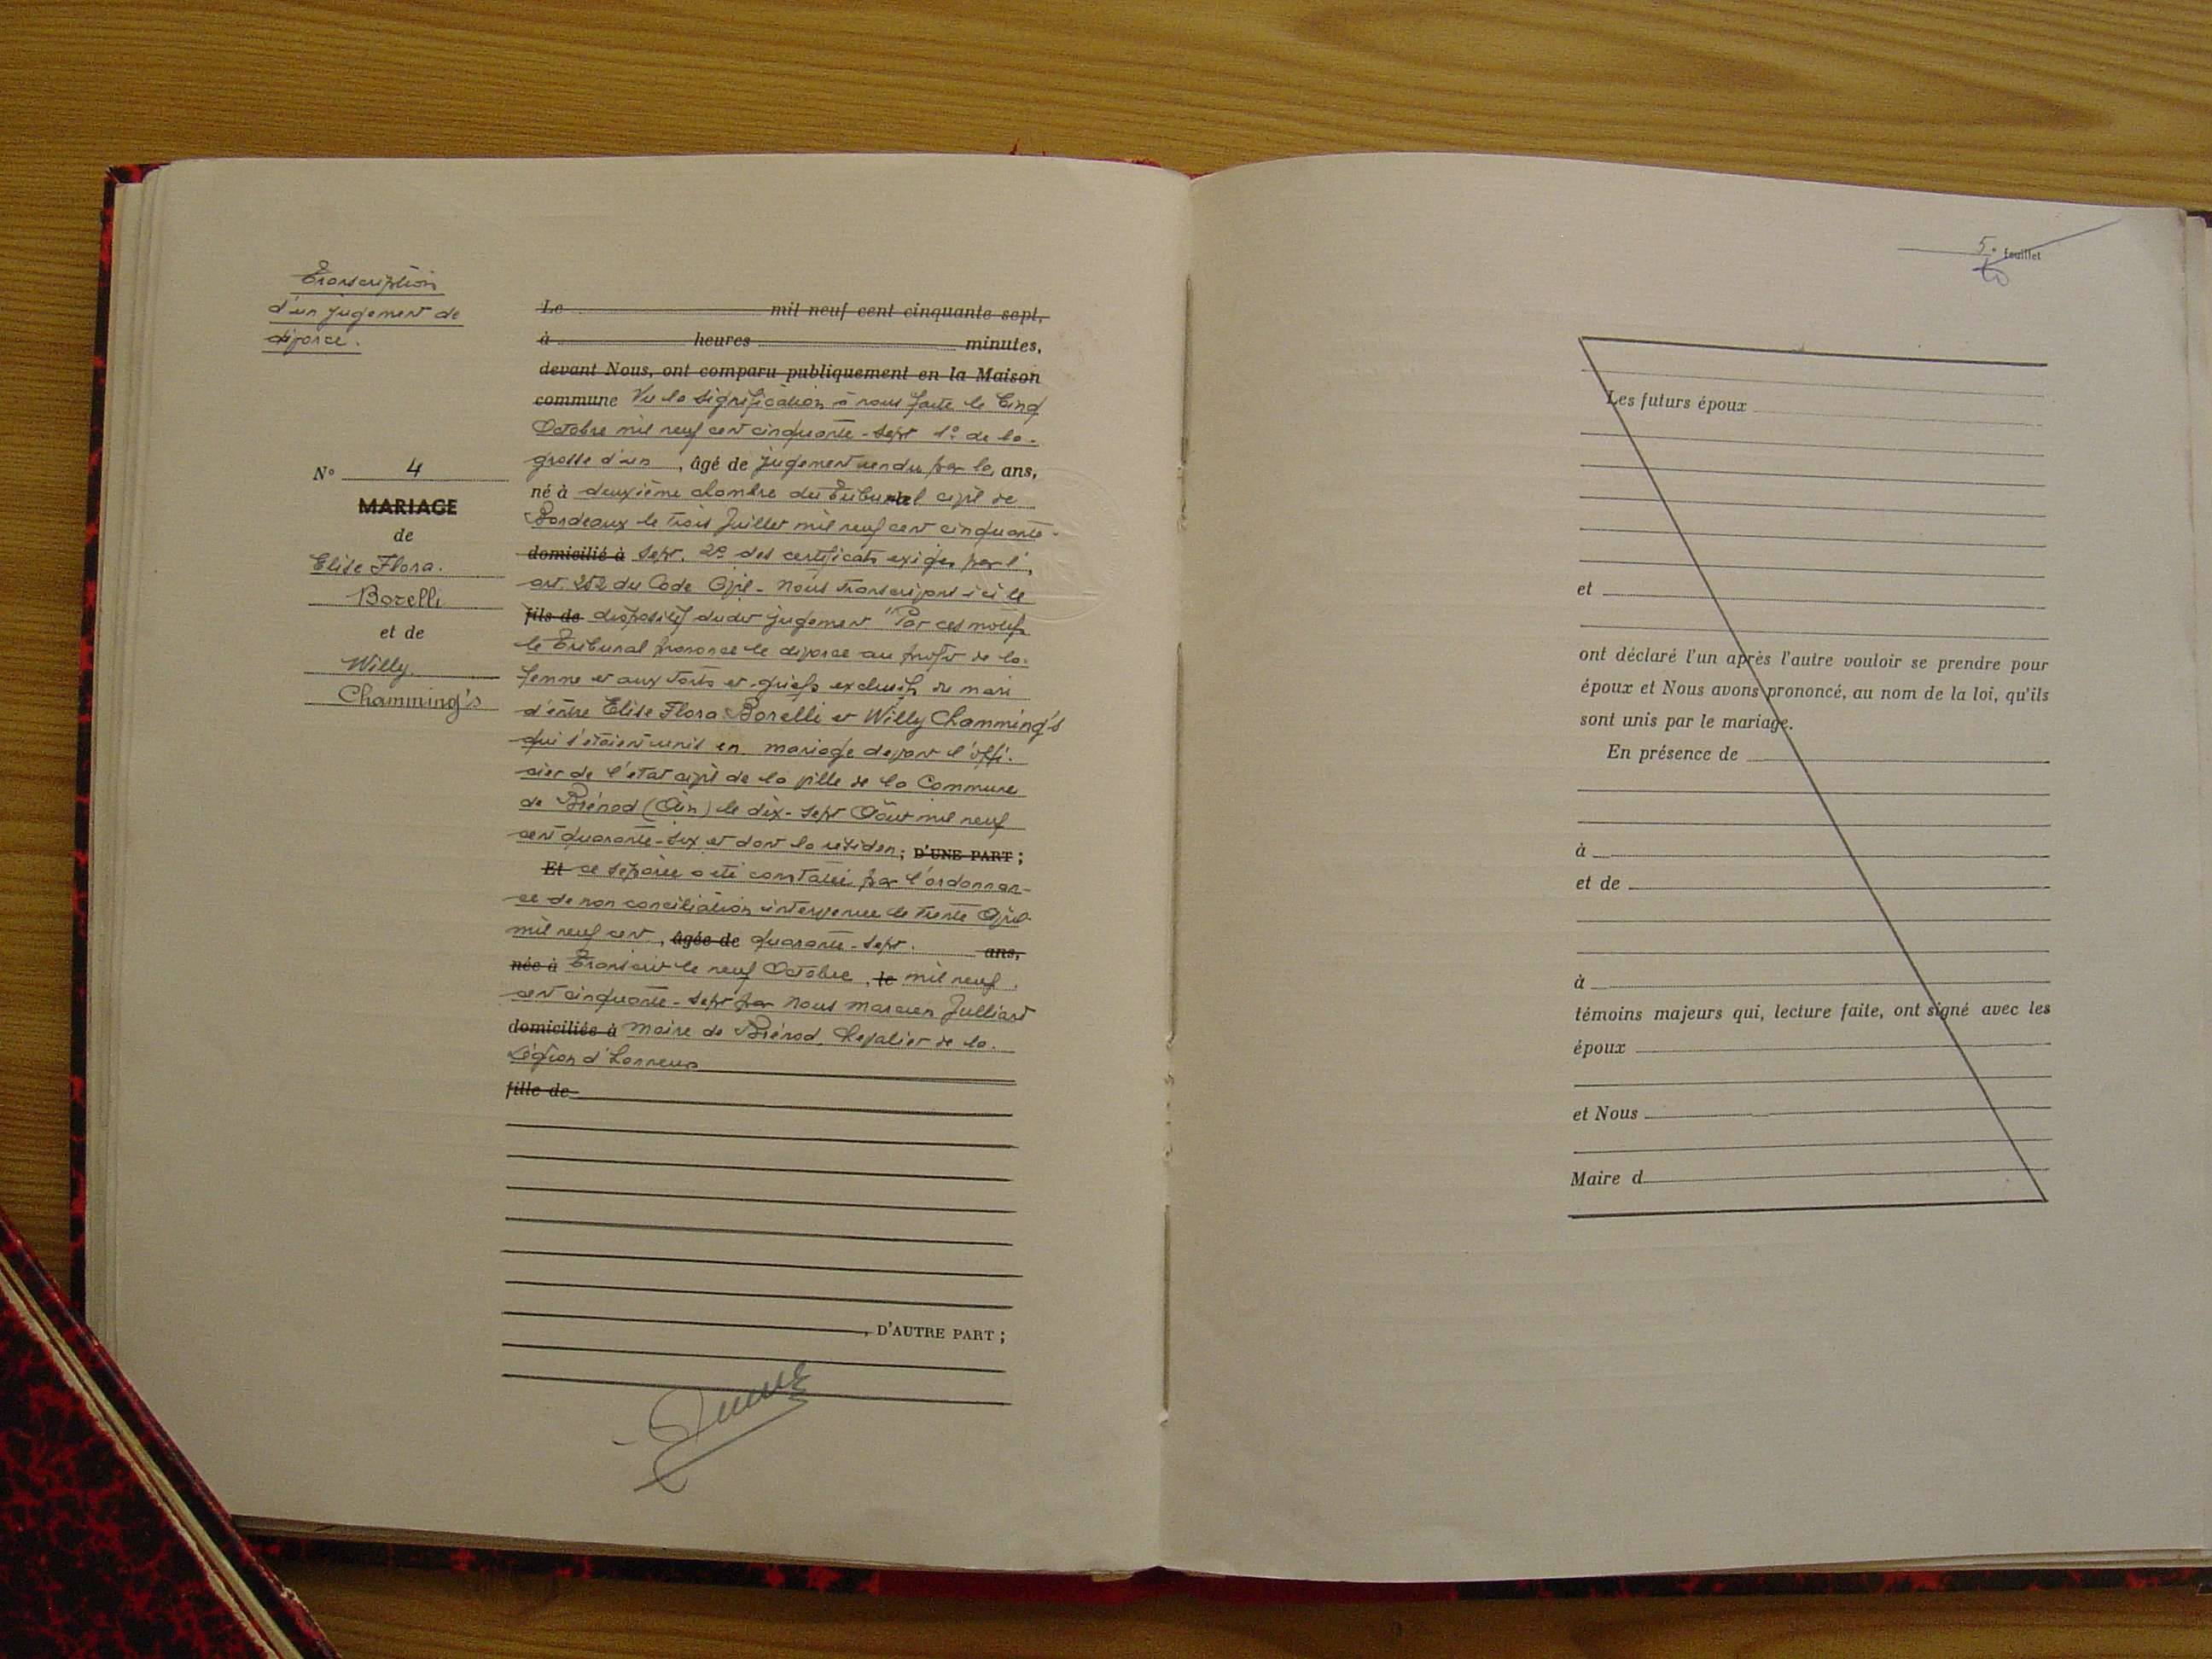 Transcription
d'un jugement de
divorce.
N° 4
MARIAGE
de
Elise Flora.
Borelli
et de
Willy.
Chamming's
Le mil neuf cent cinquante sept,
à heures minutes,
devant Nous, ont comparu publiquement en la Maison
commune Vu la signification à nous faite le Cinq
Octobre mil neuf cent cinquante-sept 1° de la
grosse d'un , âgé de jugement rendu par la ans,
né à deuxième chambre du Tribunal civil de
Bordeaux le trois Juillet mil neuf cent cinquante-
domicilié à sept. 2° des certificats exigés par l',
art. 252 du Code Civil - Nous transcrivons ici le
fils de dispositif dudit jugement "Par ces motifs
le Tribunal prononce le divorce au profit de la
femme et aux torts et griefs exclusifs du mari
d'entre Elise Flora Borelli et Willy Chamming's
qui s'étaient unis en mariage devant l'offi-
cier de l'état civil de la ville de la Commune
de Brénod (Ain) le dix-sept Août mil neuf
cent quarante-six et dont la résiden; D'UNE PART ;
Et ce séparée a été constatée par l'ordonnan-
ce de non conciliation intervenue le trente Avril
mil neuf cent, âgée de quarante-sept. ans,
née à Transcrit le neuf Octobre, le mil neuf
cent cinquante-sept par Nous Marcien Julliard
domiciliés à Maire de Brénod, Chevalier de la
Légion d'honneur
fille de
, D'AUTRE PART ;
5. feuillet
Les futurs époux
et
ont déclaré l'un après l'autre vouloir se prendre pour
époux et Nous avons prononcé, au nom de la loi, qu'ils
sont unis par le mariage.
En présence de
à
et de
à
témoins majeurs qui, lecture faite, ont signé avec les
époux
et Nous
Maire d